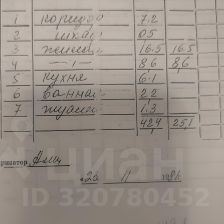 1 коридор 7.2
2 шкаф 0.5
3 жилая 16.5 16.5
4 —〃— 8.6 8,6
5 кухня 6.1
6 ванная 2.2
7 туалет 1.3
42,4 25,1
"26" 11
ЦИАН
ID 320780452